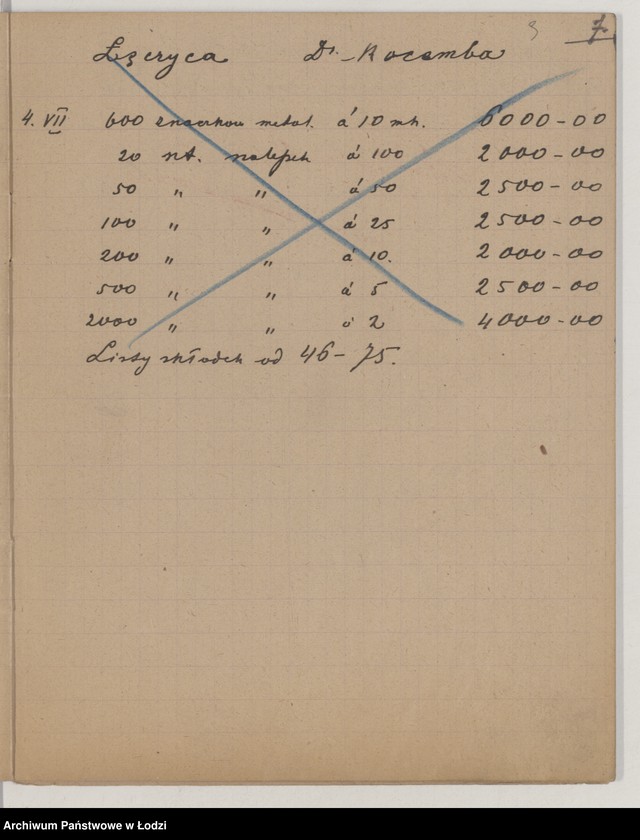 3 7
Łęczyca Dr. Kacemba
4. VII 600 znaczków metal. á 10 mk. 6000-00
20 szt. nalepek á 100 2000-00
50 " " á 50 2500-00
100 " " á 25 2500-00
200 " " á 10. 2000-00
500 " " á 5 2500-00
2000 " " á 2 4000-00
Listy składek od 46-75.
Archiwum Państwowe w Łodzi